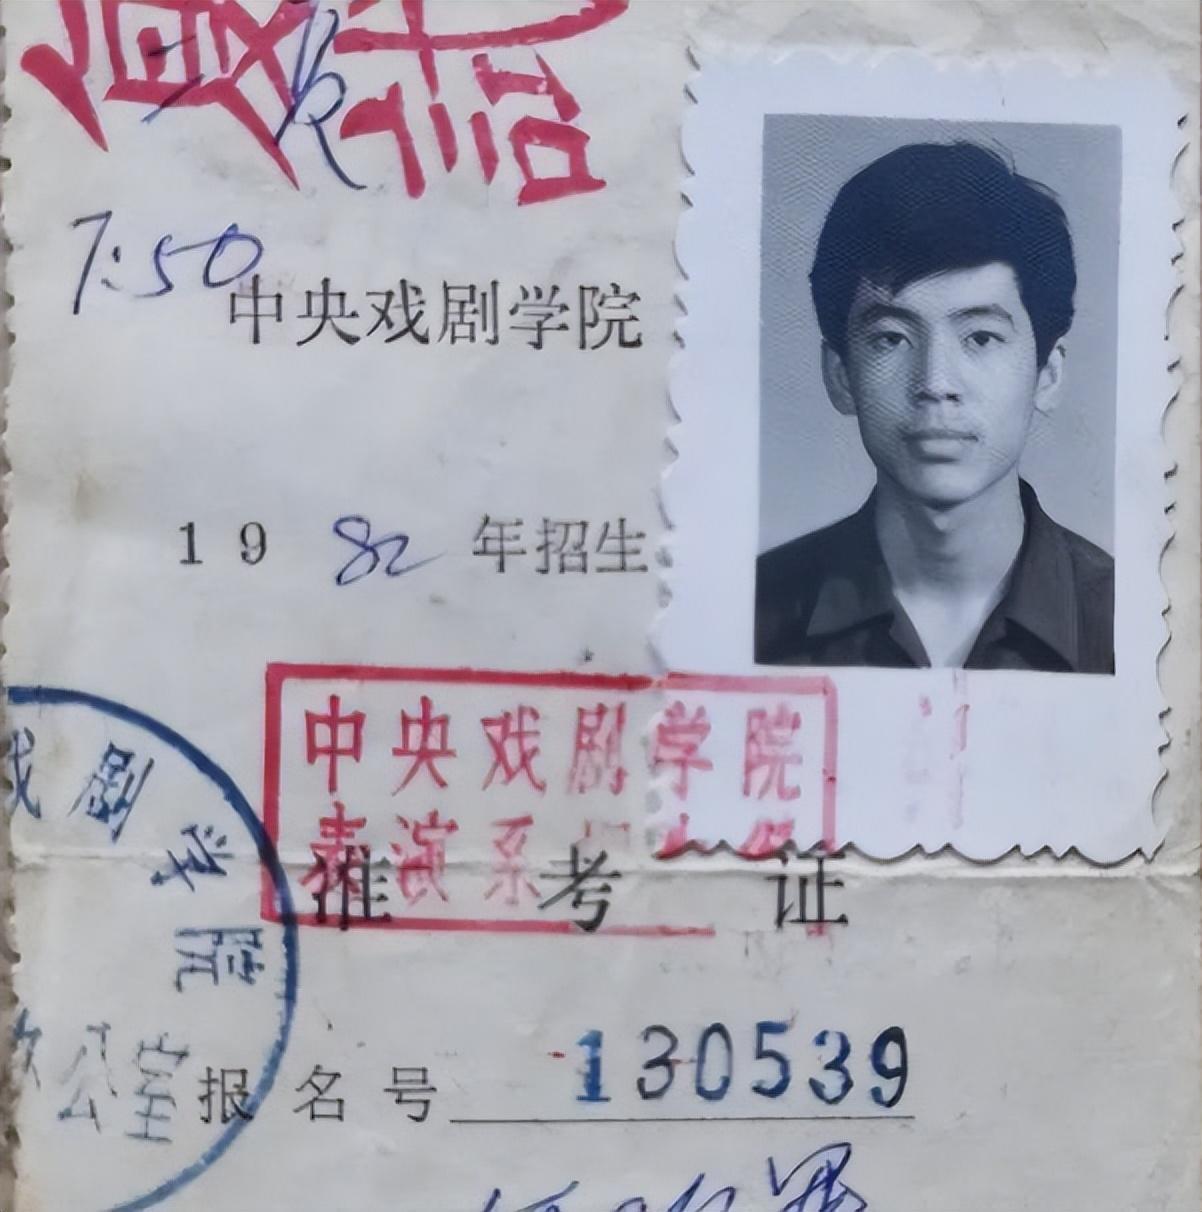 7:50
中央戏剧学院
1982年招生
中央戏剧学院
表演系
准考证
戏剧学院
公室
报名号 130539